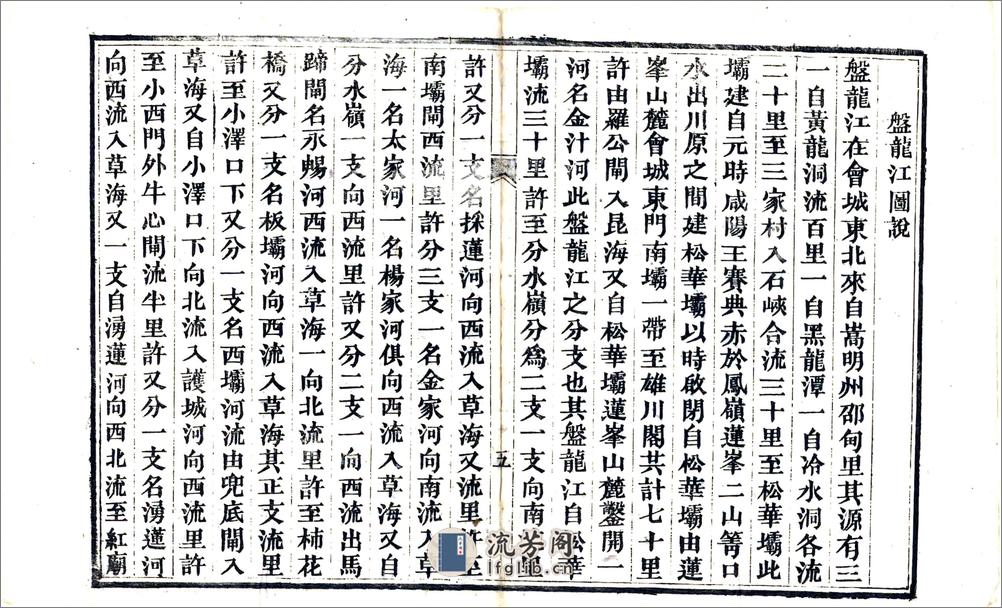 盤龍江圖說
盤龍江在會城東北來自嵩明州邵甸里其源有三
一自黃龍洞流百里一自黑龍潭一自冷水洞各流
二十里至三家村入石峽合流三十里至松華壩此
壩建自元時咸陽王賽典赤於鳳嶺蓮峯二山箐口
水出川原之間建松華壩以時啟閉自松華壩由蓮
峯山麓會城東門南壩一帶至雄川閣共計七十里
許由羅公閘入昆海又自松華壩蓮峯山麓鑿開一
河名金汁河此盤龍江之分支也其盤龍江自松華
壩流三十里許至分水嶺分爲二支一支向南里
五
許又分一支名採蓮河向西流入草海又流里許至
南壩閘西流里許分三支一名金家河向南流入草
海一名太家河一名楊家河俱向西流入草海又自
分水嶺一支向西流里許又分二支一向西流出馬
蹄閘名永賜河西流入草海一向北流里許至柿花
橋又分一支名板壩河向西流入草海其正支流里
許至小澤口下又分一支名西壩河流由兜底閘入
草海又自小澤口下向北流入護城河向西流里許
至小西門外牛心閘流半里許又分一支名湧蓮河
向西流入草海又一支自湧蓮河向西北流至紅廟
流芳阁
lfglib.cn